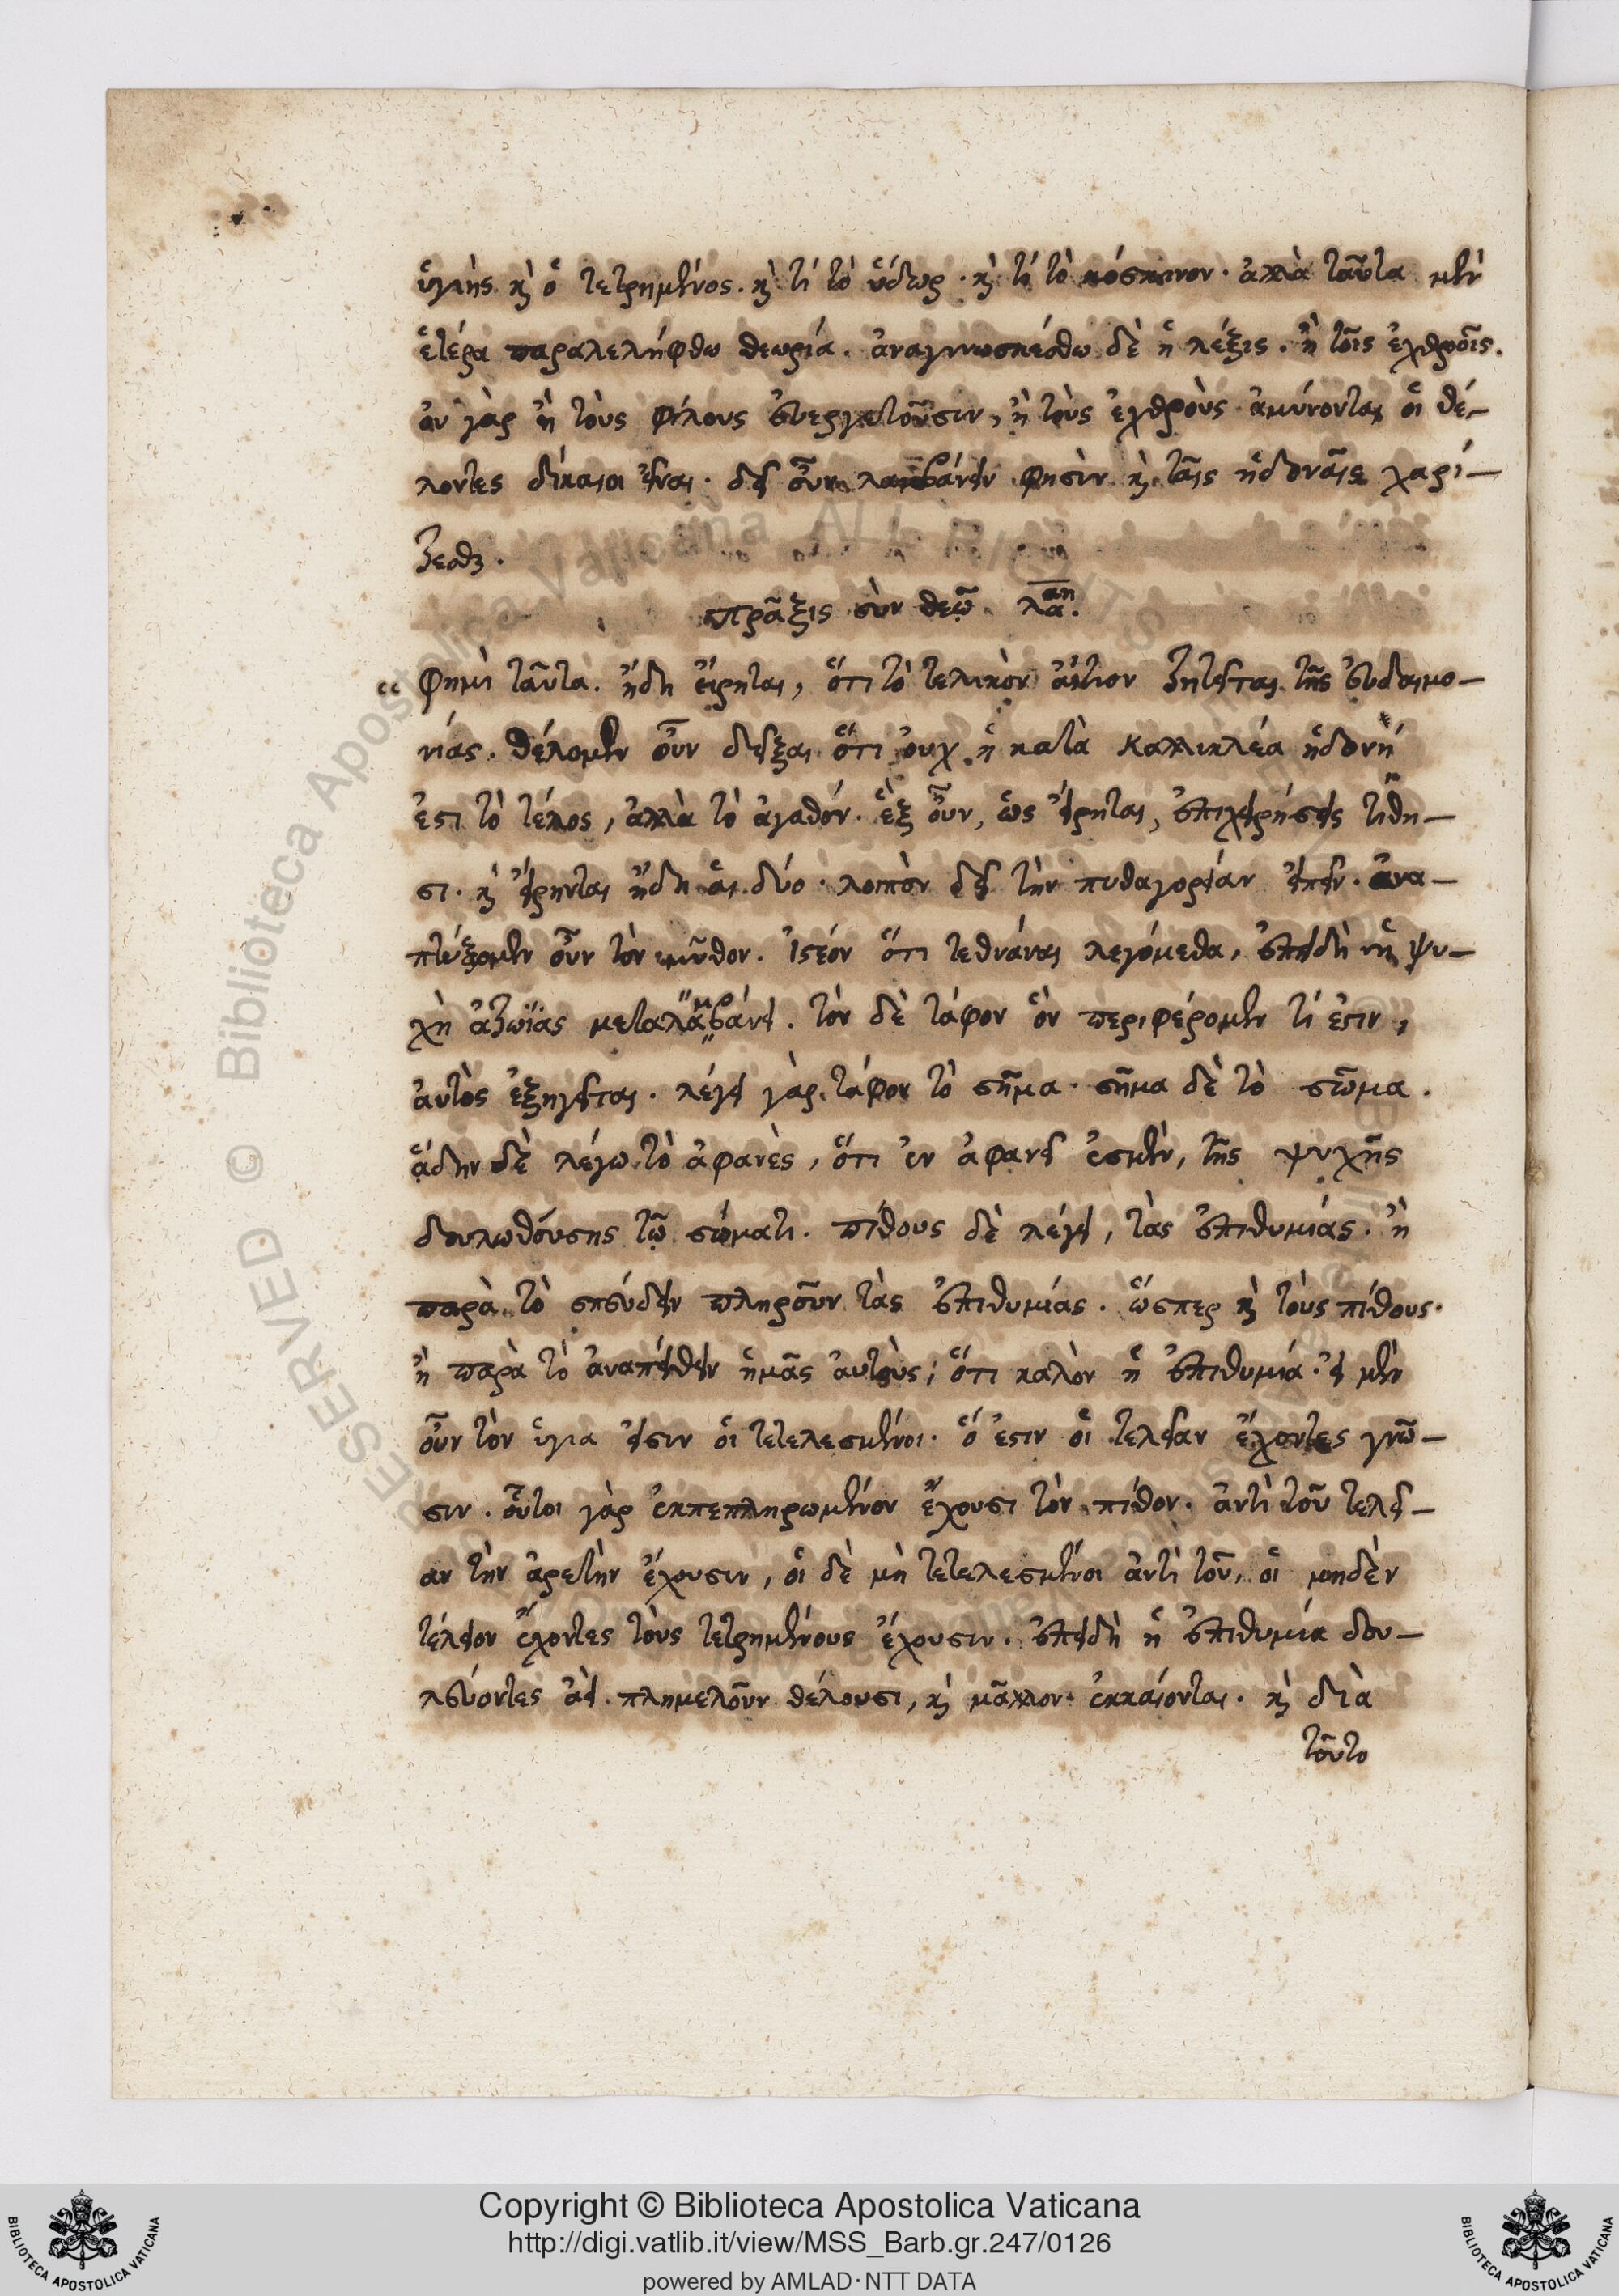 ὑγιὴς κὶ ὁ τετρημένος. κὶ τί τὸ ὕδωρ. κὶ τί τὸ κόσκινον. ἀλλὰ ταῦτα μὲν
ἑτέρα παραλελήφθω θεωρία. ἀναγινωσκέσθω δὲ ἡ λέξις. ἢ τοῖς ἐχθροῖς.
ἀν γὰρ ἢ τοὺς φίλους εὐεργετοῦσιν, ἢ τοὺς ἐχθροὺς ἀμύνονται οἱ θέ-
λοντες δίκαιοι εἶναι. δεῖ οὖν λαμβάνειν φησὶν κὶ ταῖς ἡδοναῖς χαρί-
ζεσθαι.
πρᾶξις σὺν θεῷ. λα.
“ φημὶ ταῦτα. ἤδη εἴρηται, ὅτι τὸ τελικὸν αἴτιον ζητεῖται τῆς εὐδαιμο-
νίας. θέλομεν οὖν δεῖξαι ὅτι οὐχ ἡ κατὰ Καλλικλέα ἡδονή
ἐστι τὸ τέλος, ἀλλὰ τὸ ἀγαθόν. ἓξ οὖν, ὡς εἴρηται, ἐπιχειρήσεις τίθη-
σι. κὶ εἴρηνται ἤδη αἱ δύο. λοιπὸν δεῖ τὴν πυθαγορείαν εἰπεῖν. ἀνα-
πτύξομεν οὖν τὸν μῦθον. ἰστέον ὅτι τεθνάναι λεγόμεθα, ἐπειδὴ ἡ ψυ-
χὴ ἀζωΐας μεταλαμβάνει. τὸν δὲ τάφον ὃν περιφέρομεν τί ἐστιν,
αὐτὸς ἐξηγεῖται. λέγει γὰρ τάφον τὸ σῆμα. σῆμα δὲ τὸ σῶμα.
ᾅδην δὲ λέγω τὸ ἀφανὲς, ὅτι ἐν ἀφανεῖ ἐσμὲν, τῆς ψυχῆς
δουλωθούσης τῷ σώματι. πίθους δὲ λέγει, τὰς ἐπιθυμίας. ἢ
παρὰ τὸ σπεύδειν πληροῦν τὰς ἐπιθυμίας. ὥσπερ κὶ τοὺς πίθους.
ἢ παρὰ τὸ ἀναπείθειν ἡμᾶς αὐτοὺς, ὅτι καλὸν ἡ ἐπιθυμία. εἰ μὲν
οὖν τὸν ὑγια εἰσιν οἱ τετελεσμένοι. ὅ ἐστιν οἱ τελείαν ἔχοντες γνῶ-
σιν. οὗτοι γὰρ ἐκπεπληρωμένον ἔχουσι τὸν πίθον. ἀντὶ τοῦ τελεί-
αν τὴν ἀρετὴν ἔχουσιν, οἱ δὲ μὴ τετελεσμένοι ἀντὶ τοῦ, οἱ μηδὲν
τέλειον ἔχοντες τοὺς τετρημένους ἔχουσιν. ἐπειδὴ ἡ ἐπιθυμία δου-
λεύοντες ἀεὶ πλημελοῦν θέλουσι, κὶ μᾶλλον ἐκκαίονται. κὶ διὰ
τοῦτο
Biblioteca Apostolica Vaticana ALL RIGHTS RESERVED ©
Copyright © Biblioteca Apostolica Vaticana
http://digi.vatlib.it/view/MSS_Barb.gr.247/0126
powered by AMLAD·NTT DATA
BIBLIOTECA APOSTOLICA VATICANA
BIBLIOTECA APOSTOLICA VATICANA